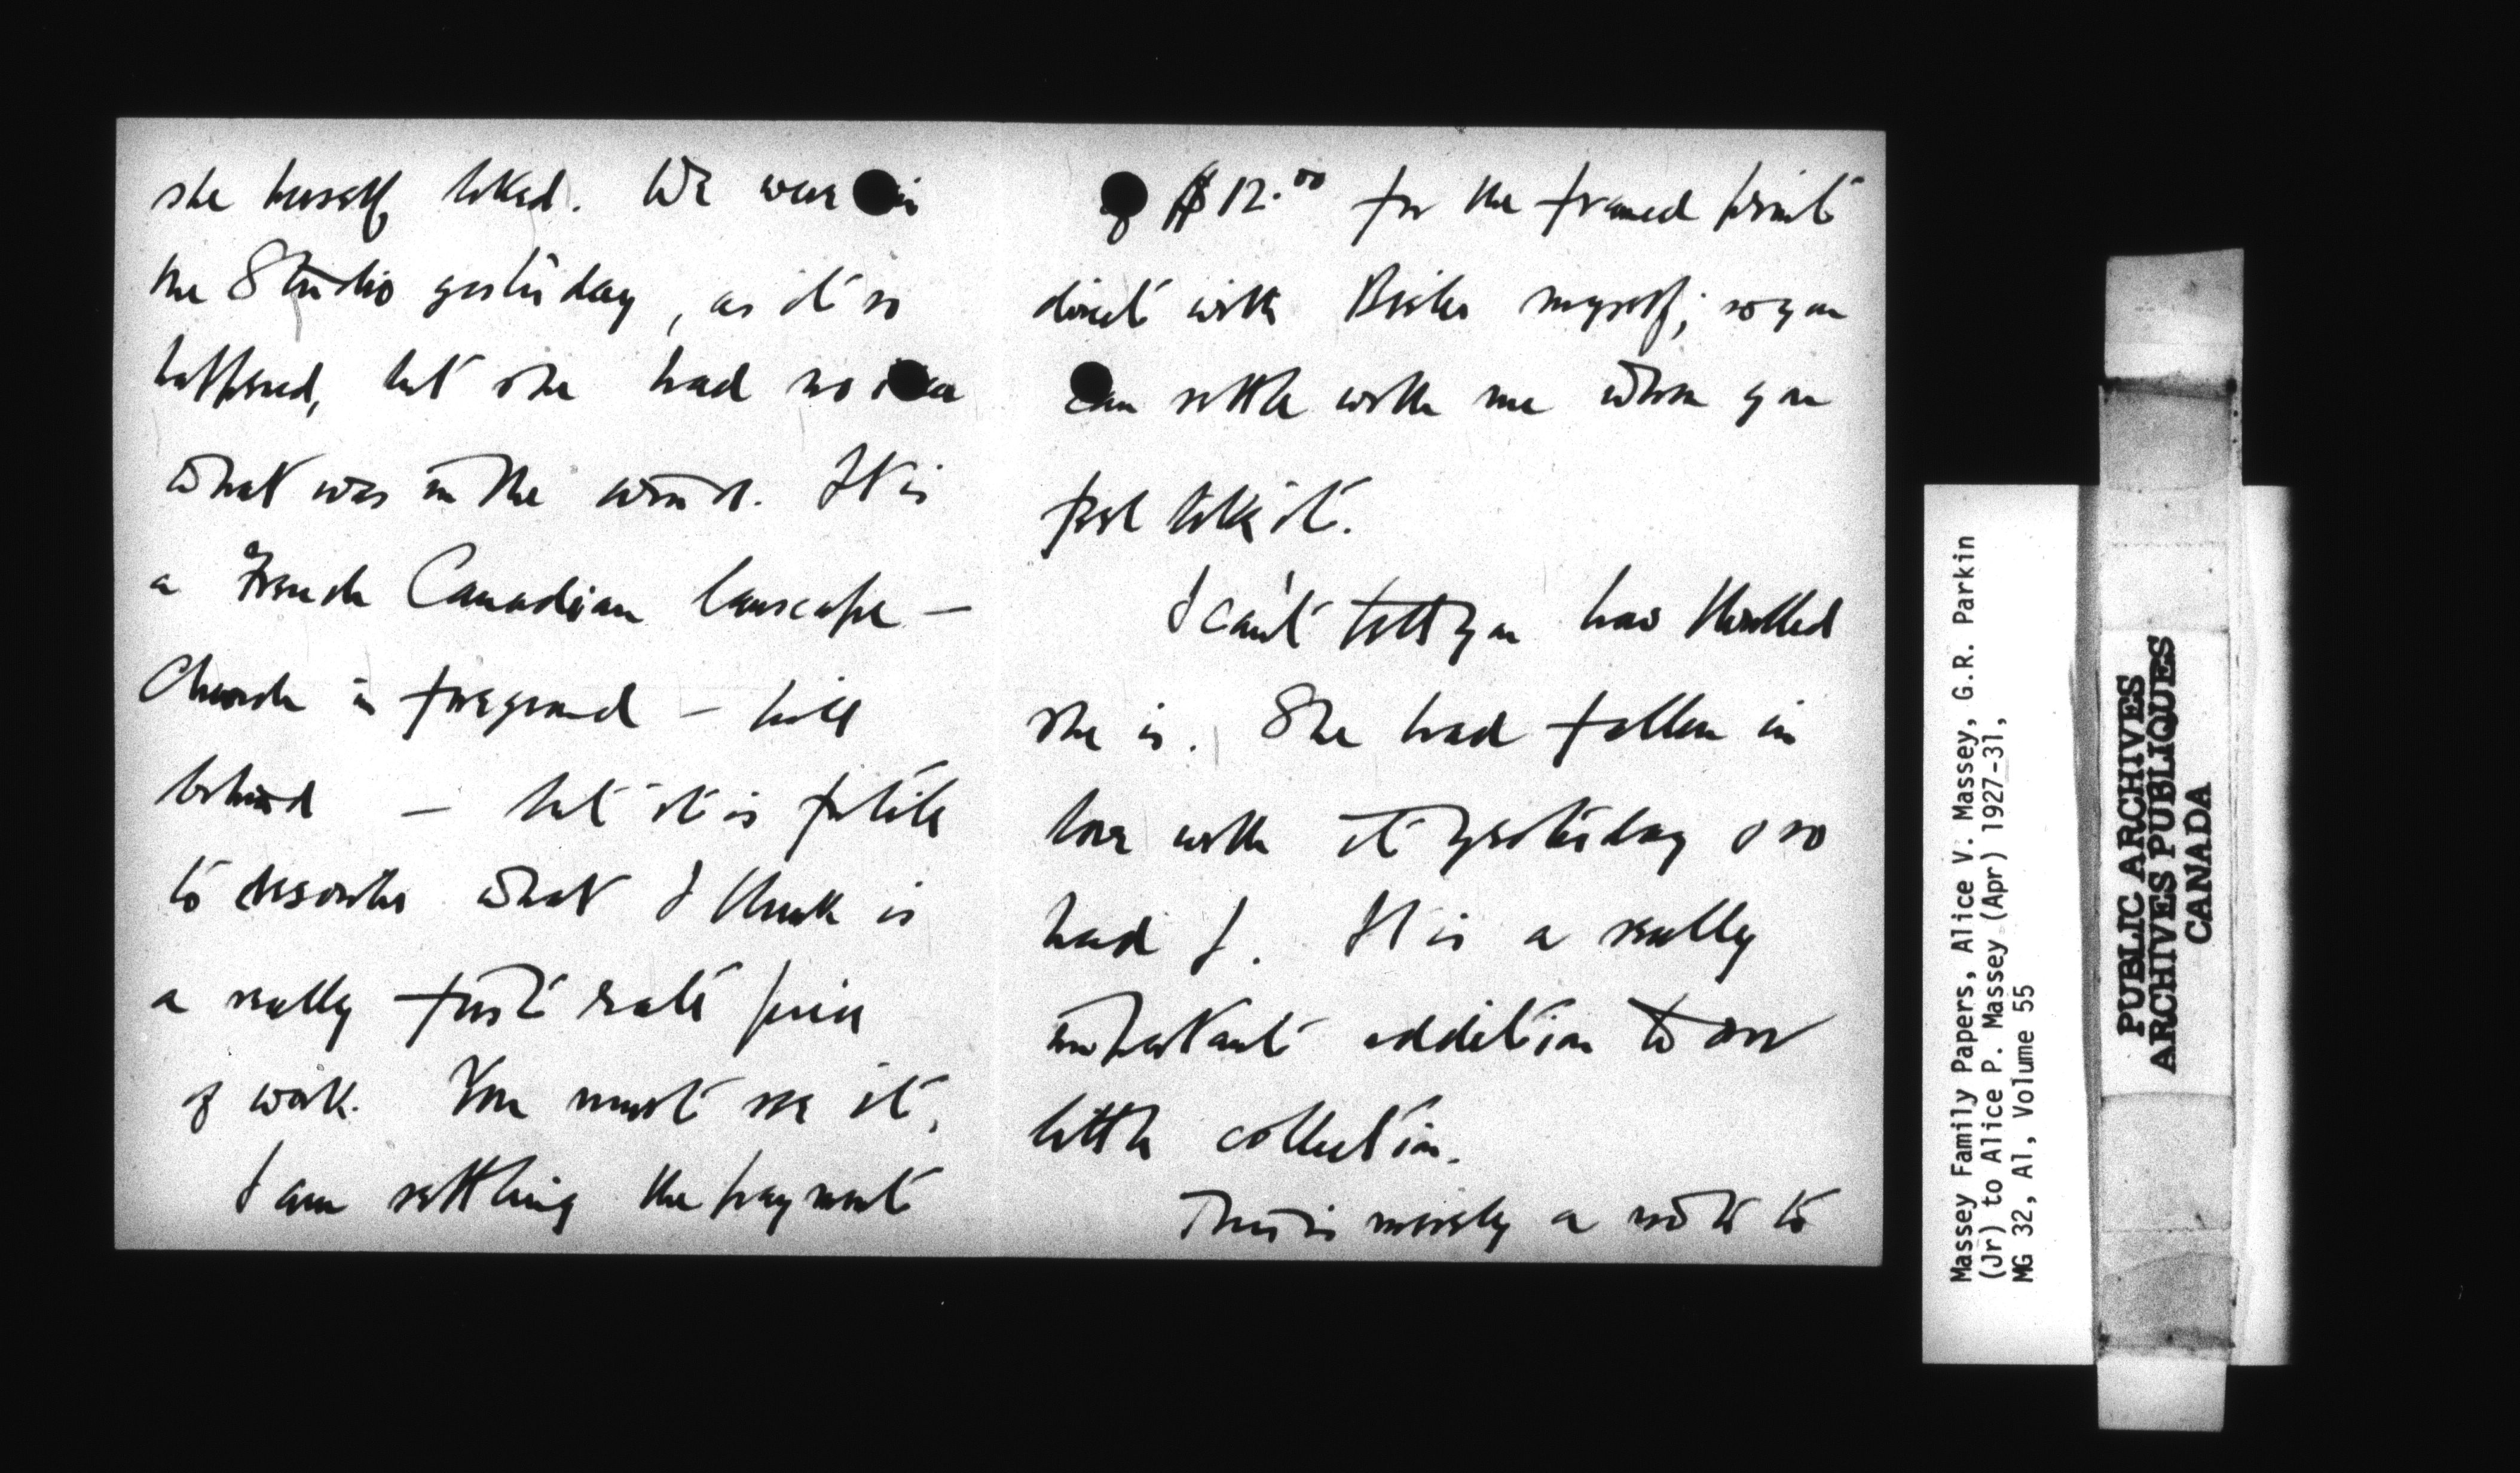 she herself liked. We were in
the Studio yesterday, as it so
happened, but she had no idea
what was in the wind. It is
a French Canadian lanscape —
Church in foreground — hill
behind — but it is futile
to describe what I think is
a really first rate piece
of work. You must see it.
I am settling the payment
of $12.00 for the framed print
direct with myself; so you
can settle with me when you
feel like it.
I can't tell you how thrilled
she is. She had fallen in
love with it yesterday & so
had I. It is a really
important addition to our
little collection.
This is merely a note to
Massey Family Papers, Alice V. Massey, G.R. Parkin
(Jr) to Alice P. Massey (Apr) 1927-31,
MG 32, A1, Volume 55
PUBLIC ARCHIVES
ARCHIVES PUBLIQUES
CANADA